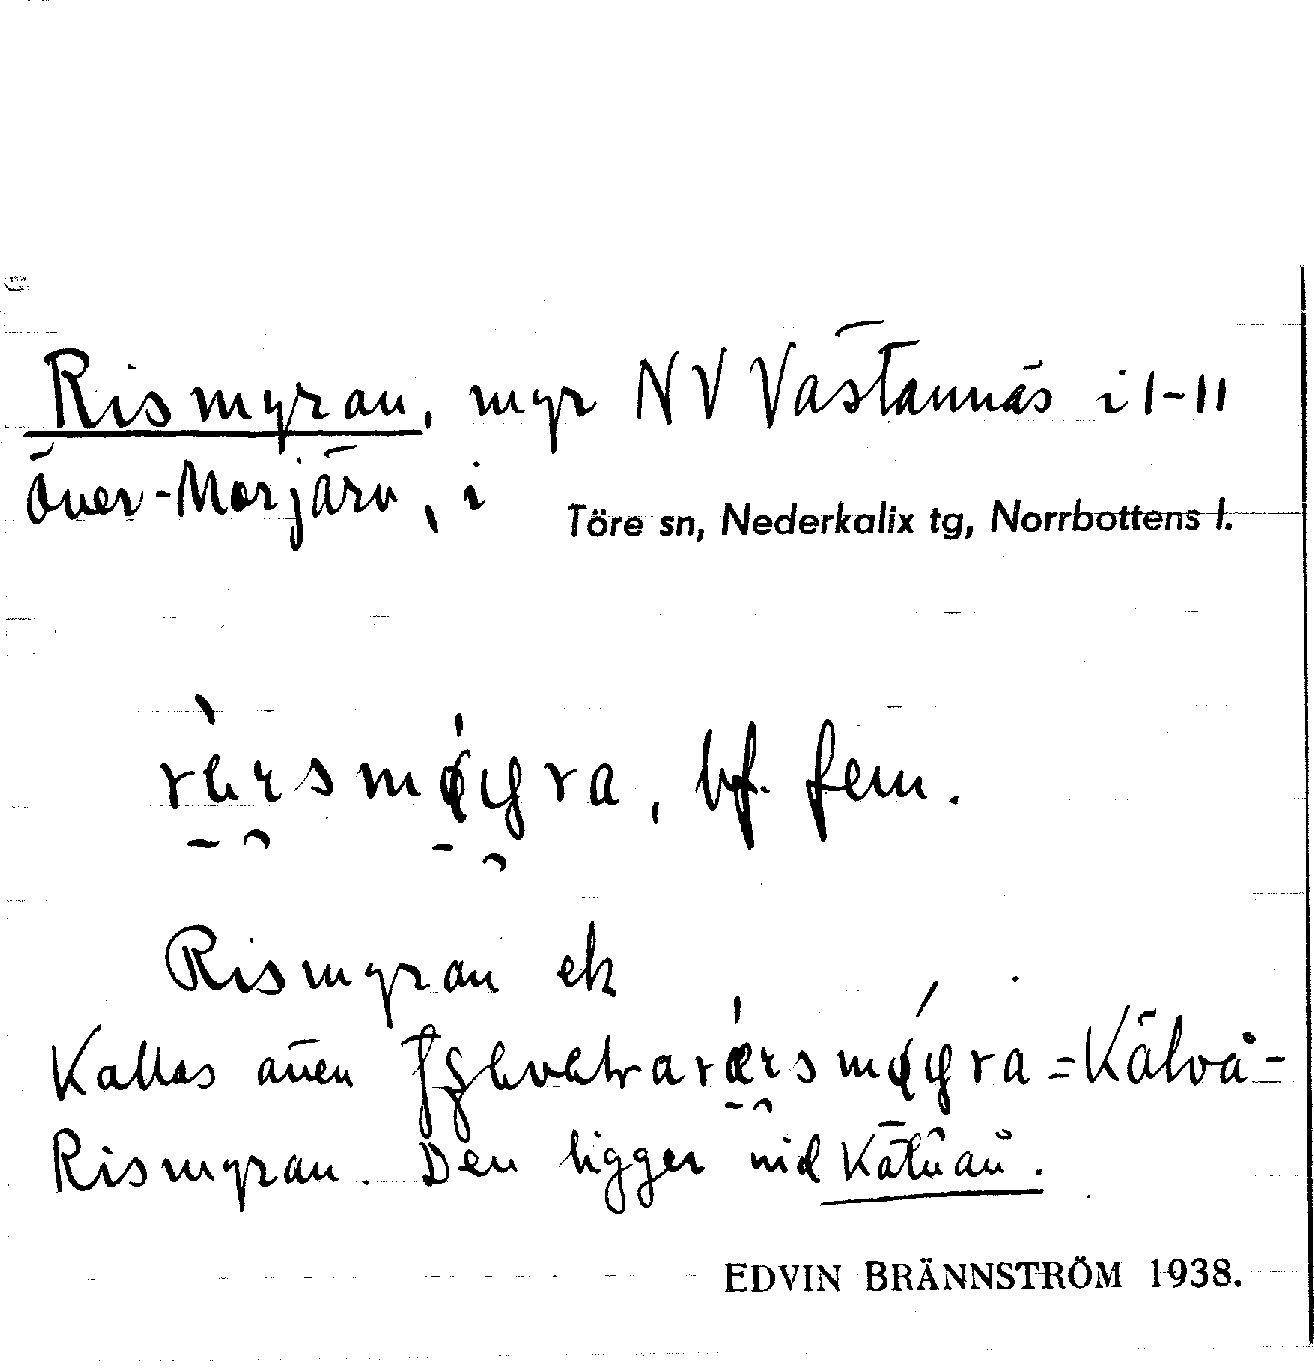 Rismyran, myr NV Västannäs i 1-11
Över-Morjärv, i Töre sn, Nederkalix tg, Norrbottens l.
bf. fem.
Rismyran ek
Kallas även = Kälvå-
Rismyran. Den ligger vid Kälvån.
EDVIN BRÄNNSTRÖM 1938.